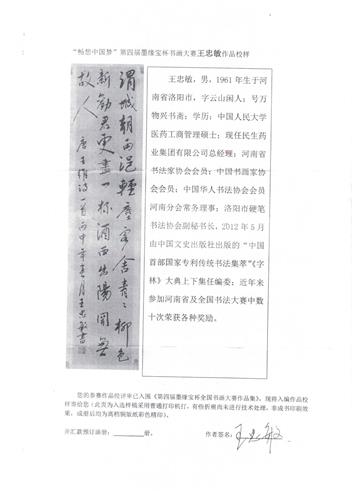 “畅想中国梦”第四届墨缘宝杯书画大赛王忠敏作品校样
渭城朝雨浥轻尘客舍青青柳色
新劝君更尽一杯酒西出阳关无
故人
唐王维诗一首
王忠敏书
王忠敏，男，1961年生于河
南省洛阳市，字云山闲人；号万
物兴书斋；学历：中国人民大学
医药工商管理硕士；现任民生药
业集团有限公司总经理；河南省
书法家协会会员；中国书画家协
会会员；中国华人书法协会会员
河南分会常务理事；洛阳市硬笔
书法协会副秘书长，2012年5月
由中国文史出版社出版的“中国
首部国家专利传统书法集萃”《字
林》大典上下集任编委；近年来
参加河南省及全国书法大赛中数
十次荣获各种奖励。
您的参赛作品经评审已入围《第四届墨缘宝杯全国书画大赛作品集》，现将入编作品校
样寄给您（此页为入选样稿采用普通打印机打，有些折痕尚未进行技术处理，非成书印刷效
果，成册后均为高档铜版纸彩色精印）。
并汇款预订该册：______册。
作者签名：王忠敏